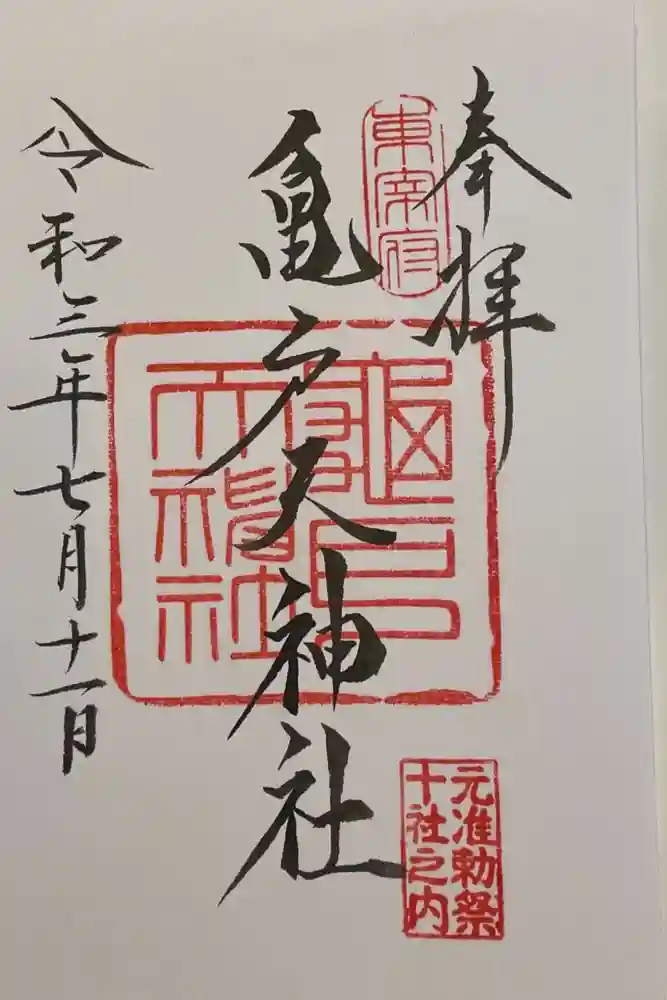 奉拝
東宰府
亀戸天神社
亀戸天神社
元准勅祭
十社之内
令和三年七月十一日